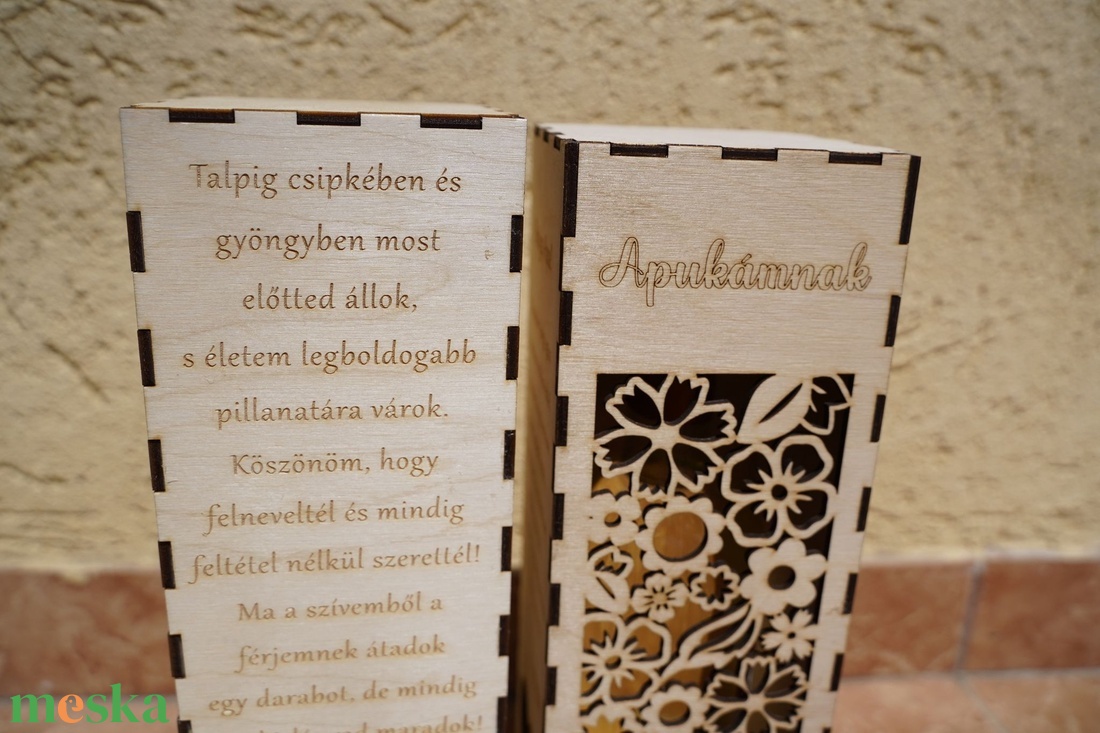 Talpig csipkében és
gyöngyben most
előtted állok,
s életem legboldogabb
pillanatára várok.
Köszönöm, hogy
felneveltél és mindig
feltétel nélkül szerettél!
Ma a szívemből a
férjemnek átadok
egy darabot, de mindig
maradok!
Apukámnak
meska